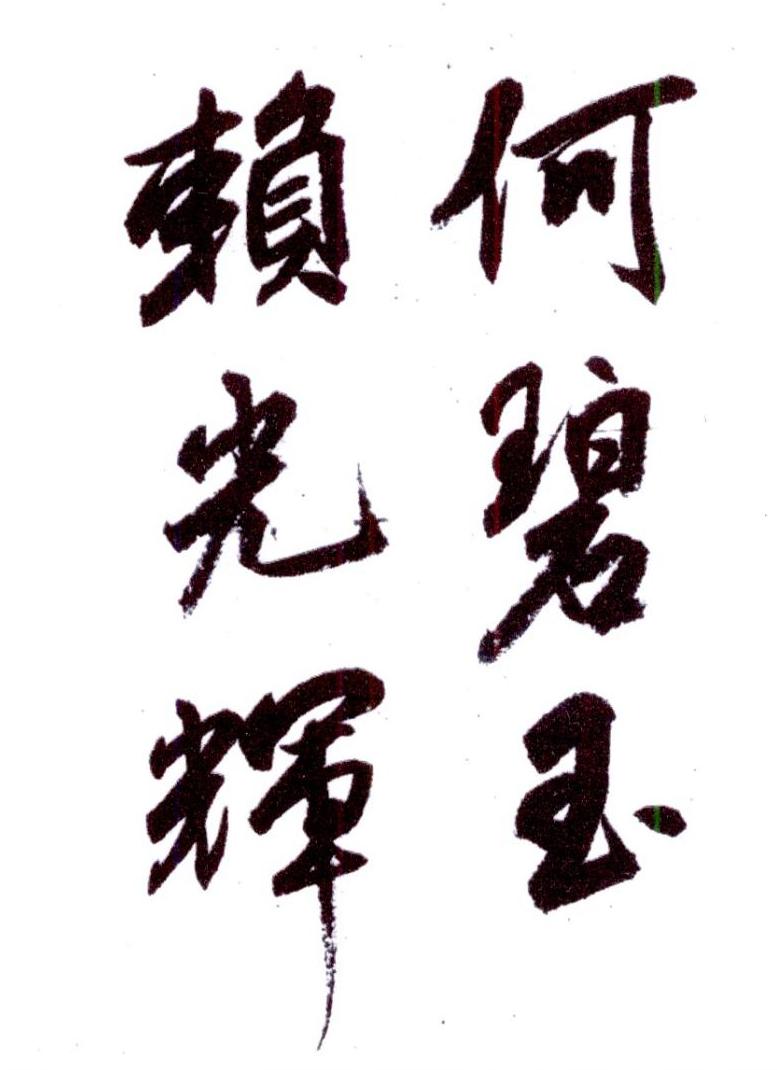 何碧玉
賴光輝